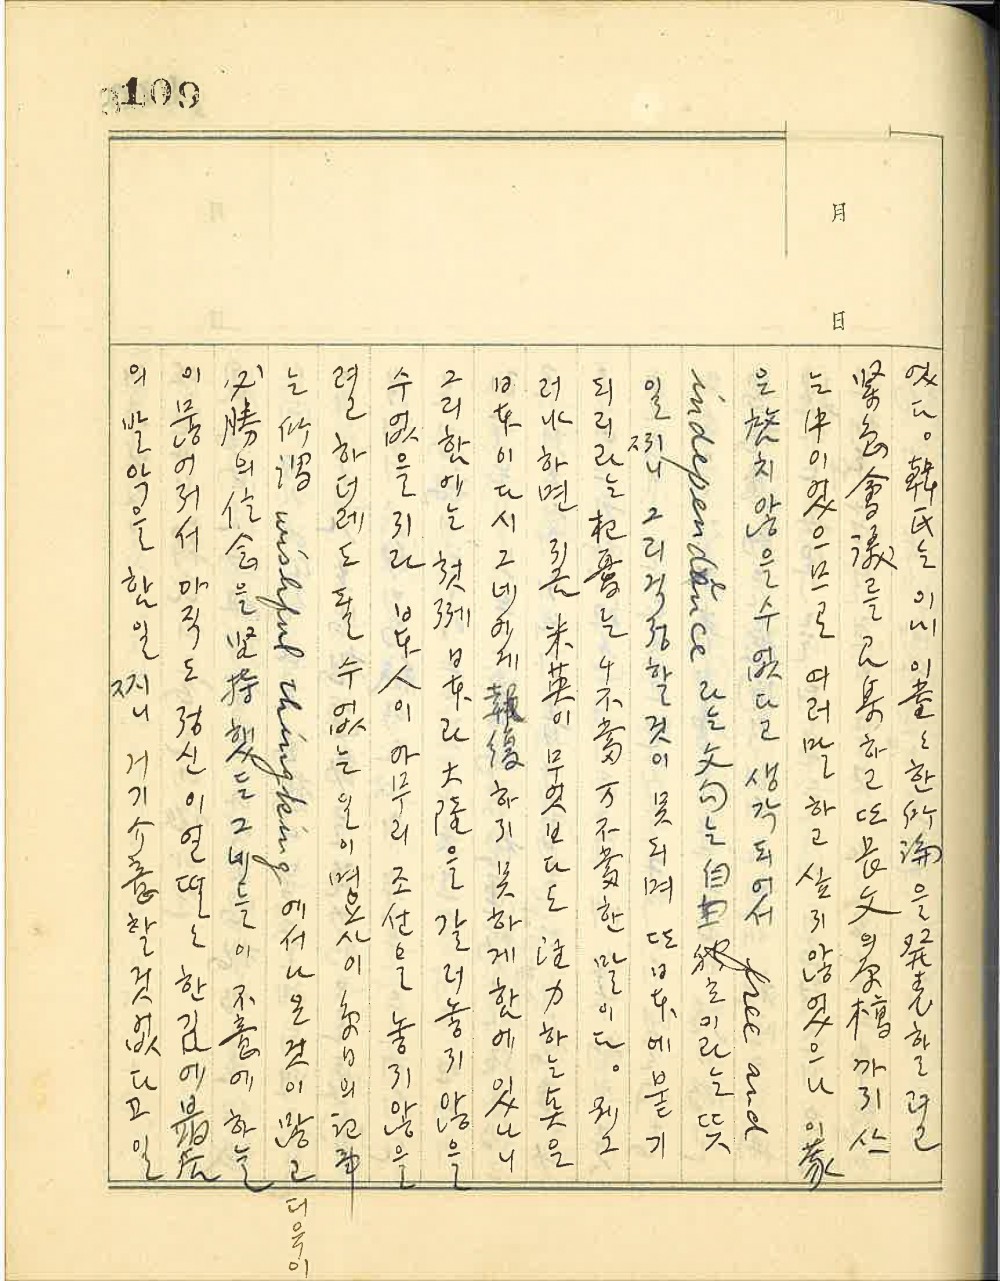 109
月
日
었다。韓氏는 이내 이臺는 한 所論을 発表할려고
緊急會議를 召集하고 또 長文의 原稿까지 쓰
는中이었으므로 여러말 하고 싶지 않었으나 이 蒙
은 啓치 않을수 없다고 생각되어서 free and
independence 라는 文句는 自由 独立이라는 뜻
일찌니 그리 걱정할것이 못되며 또 日本에 붙기
되리라는 杞憂는 千不當 万不當한 말이다。 웨그
러냐 하면 지금 米英이 무엇보다도 注力하는 点은
日本이 다시 그네에게 報復하지 못하게 함에 있나니
그리함에는 첫째 日本과 大陸을 갈러놓지 않을
수 없을지라 日本人이 아무리 조선을 놓지 않을
려고 하더래도 될 수 없는 일이며 要사이 新聞의 記事
는 所謂 wishful thingking 에서 나온것이 많고 더욱이
必勝의 信念을 堅持했든 그네들이 不意에 하늘
이 문어저서 아직도 정신이 얼떨한 김에 最后
의 발악을 함일찌니 거기 介意할것 없다고 일